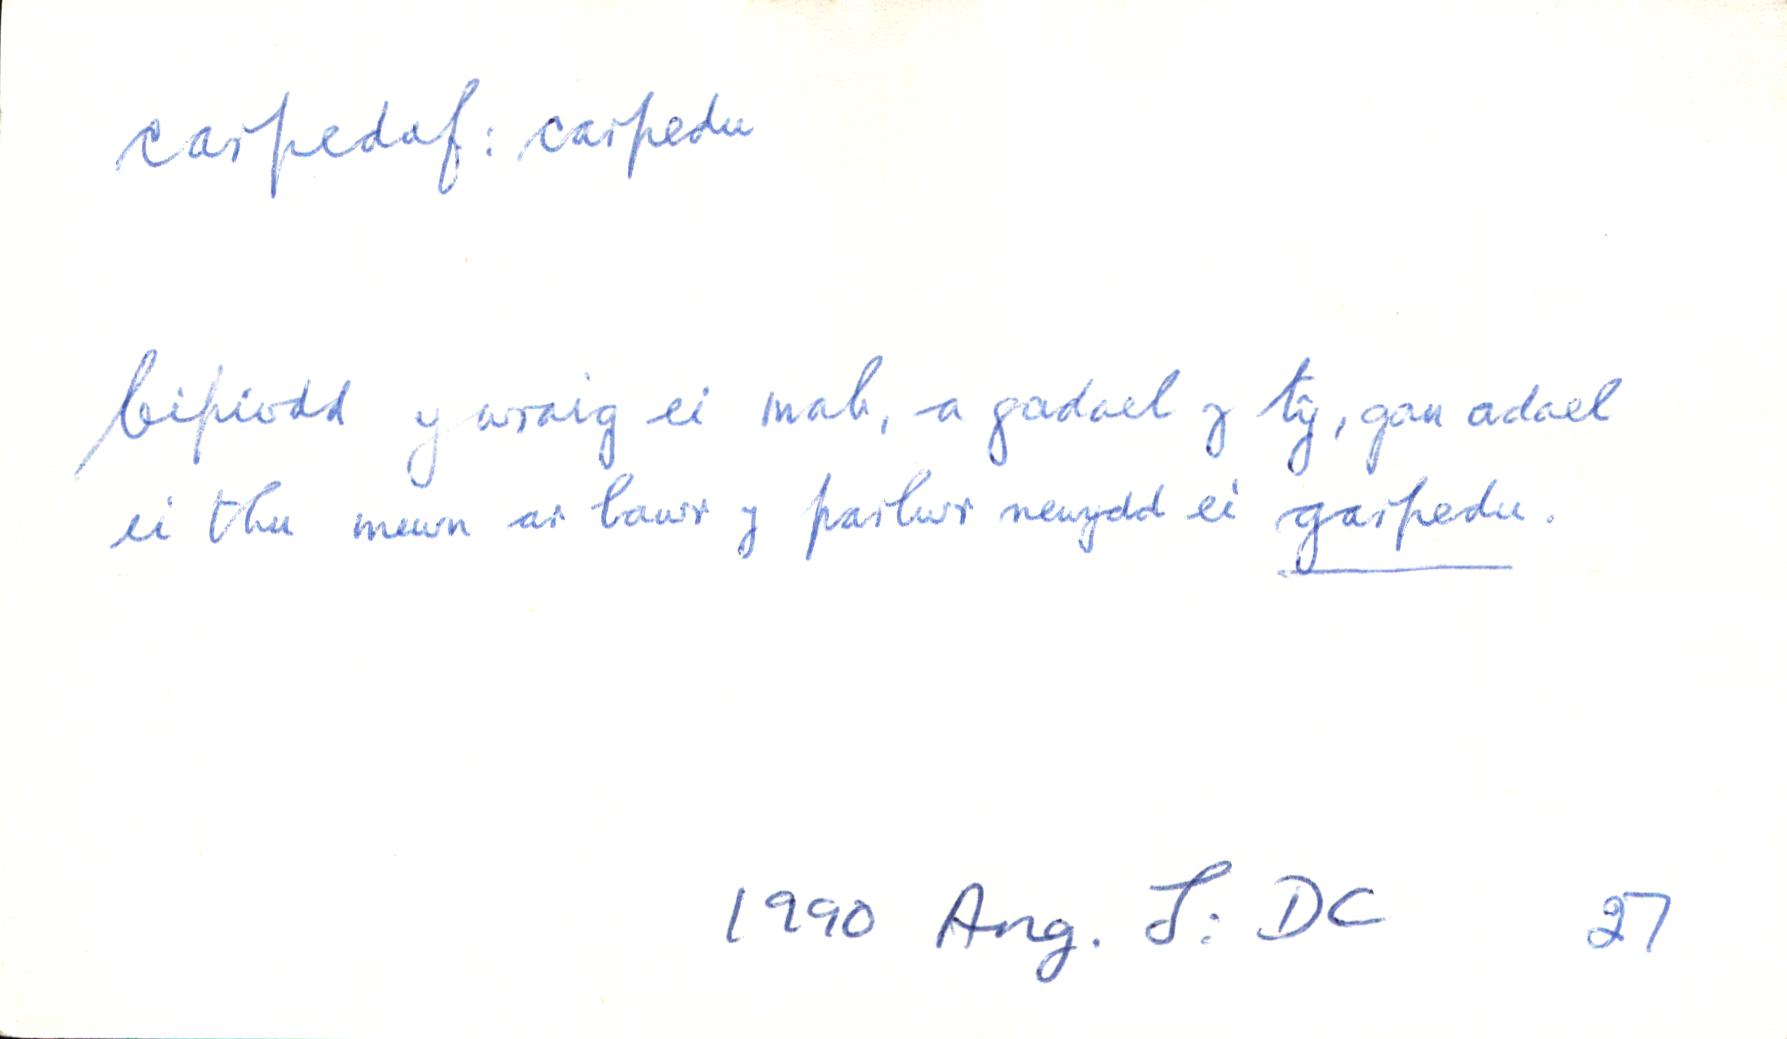 carpedaf: carpedu
Cipiodd y wraig ei mab, a gadael y tŷ, gan adael
ei thu mewn ar lawr y parlwr newydd ei garpedu.
1990 Ang. T: DC 27